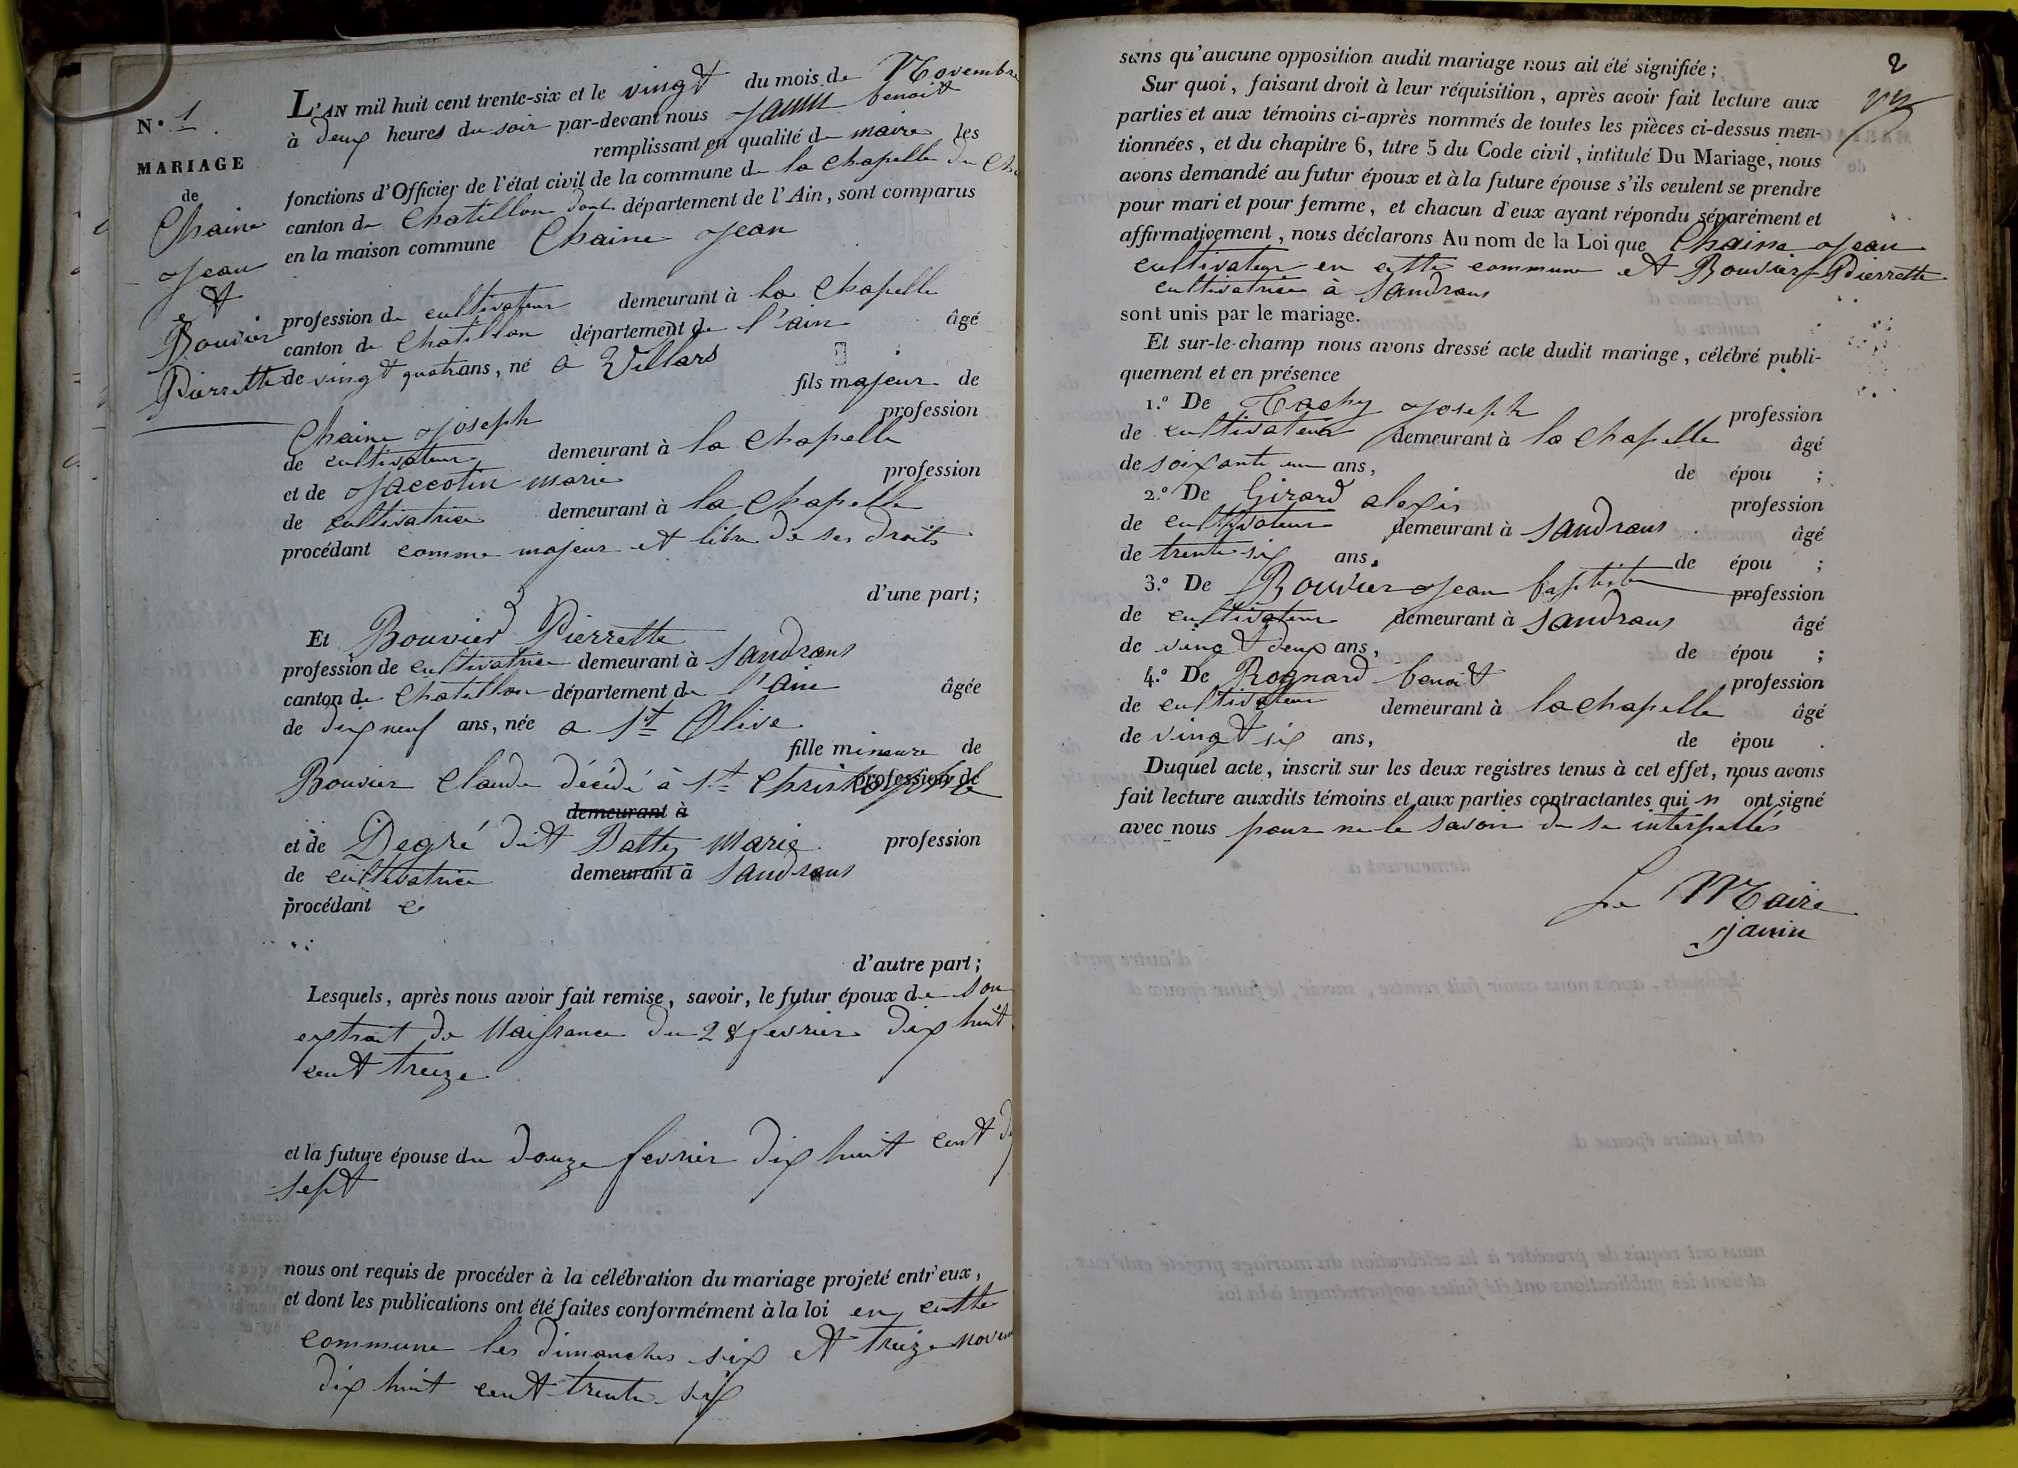 N.° 1
MARIAGE
de
Chaine
Jean
et
Bouvier
Pierrette
L'AN mil huit cent trente-six et le vingt du mois de Novembre
à deux heures du soir par-devant nous Janin benoit
remplissant en qualité de maire les
fonctions d'Officier de l'état civil de la commune de la chapelle du Cha
canton de Chatillon département de l'Ain, sont comparus
en la maison commune Chaine Jean
profession de cultivateur demeurant à la chapelle
canton de Chatillon département de l'ain âgé
de vingt quatrans, né a Villars
fils majeur de
Chaine Joseph profession
de cultivateur demeurant à la chapelle
et de Jaccotin marie profession
de cultivatrice demeurant à la chapelle
procédant comme majeur et libre de ses droits
d'une part;
Et Bouvier Pierrette
profession de cultivatrice demeurant à Sandrans
canton de Chatillon département de l'Ain âgée
de dix neuf ans, née a St Olive
fille mineure de
Bouvier Claude décédé à St Christophe profession de
demeurant à
et de Degré dit Battez Marie profession
de cultivatrice demeurant à Sandrans
procédant
d'autre part;
Lesquels, après nous avoir fait remise, savoir, le futur époux de son
extrait de Naissance du 28 fevrier dix huit
cent treize
et la future épouse du douze fevrier dix huit cent di
sept
nous ont requis de procéder à la célébration du mariage projeté entr'eux,
et dont les publications ont été faites conformément à la loi en cette
commune les dimanches six et treize novem
dix huit cent trente six
2
sans qu'aucune opposition audit mariage nous ait été signifiée;
Sur quoi, faisant droit à leur réquisition, après avoir fait lecture aux
parties et aux témoins ci-après nommés de toutes les pièces ci-dessus men-
tionnées, et du chapitre 6, titre 5 du Code civil, intitulé Du Mariage, nous
avons demandé au futur époux et à la future épouse s'ils veulent se prendre
pour mari et pour femme, et chacun d'eux ayant répondu séparément et
affirmativement, nous déclarons Au nom de la Loi que Chaine Jean
cultivateur en cette commune et Bouvier Pierrette
cultivatrice à Sandrans
sont unis par le mariage.
Et sur-le-champ nous avons dressé acte dudit mariage, célébré publi-
quement et en présence
1.° De Tachy Joseph profession
de cultivateur demeurant à la chapelle âgé
de soixante un ans, de épou ;
2.° De Girard alexis profession
de cultivateur demeurant à Sandrans âgé
de trente six ans, de épou ;
3.° De Bouvier Jean baptiste profession
de cultivateur demeurant à Sandrans âgé
de vingt deux ans, de épou ;
4.° De Rognard benoit profession
de cultivateur demeurant à la chapelle âgé
de vingt six ans, de épou .
Duquel acte, inscrit sur les deux registres tenus à cet effet, nous avons
fait lecture auxdits témoins et aux parties contractantes qui n ont signé
avec nous pour ne le savoir de se interpellés
Le Maire
Janin